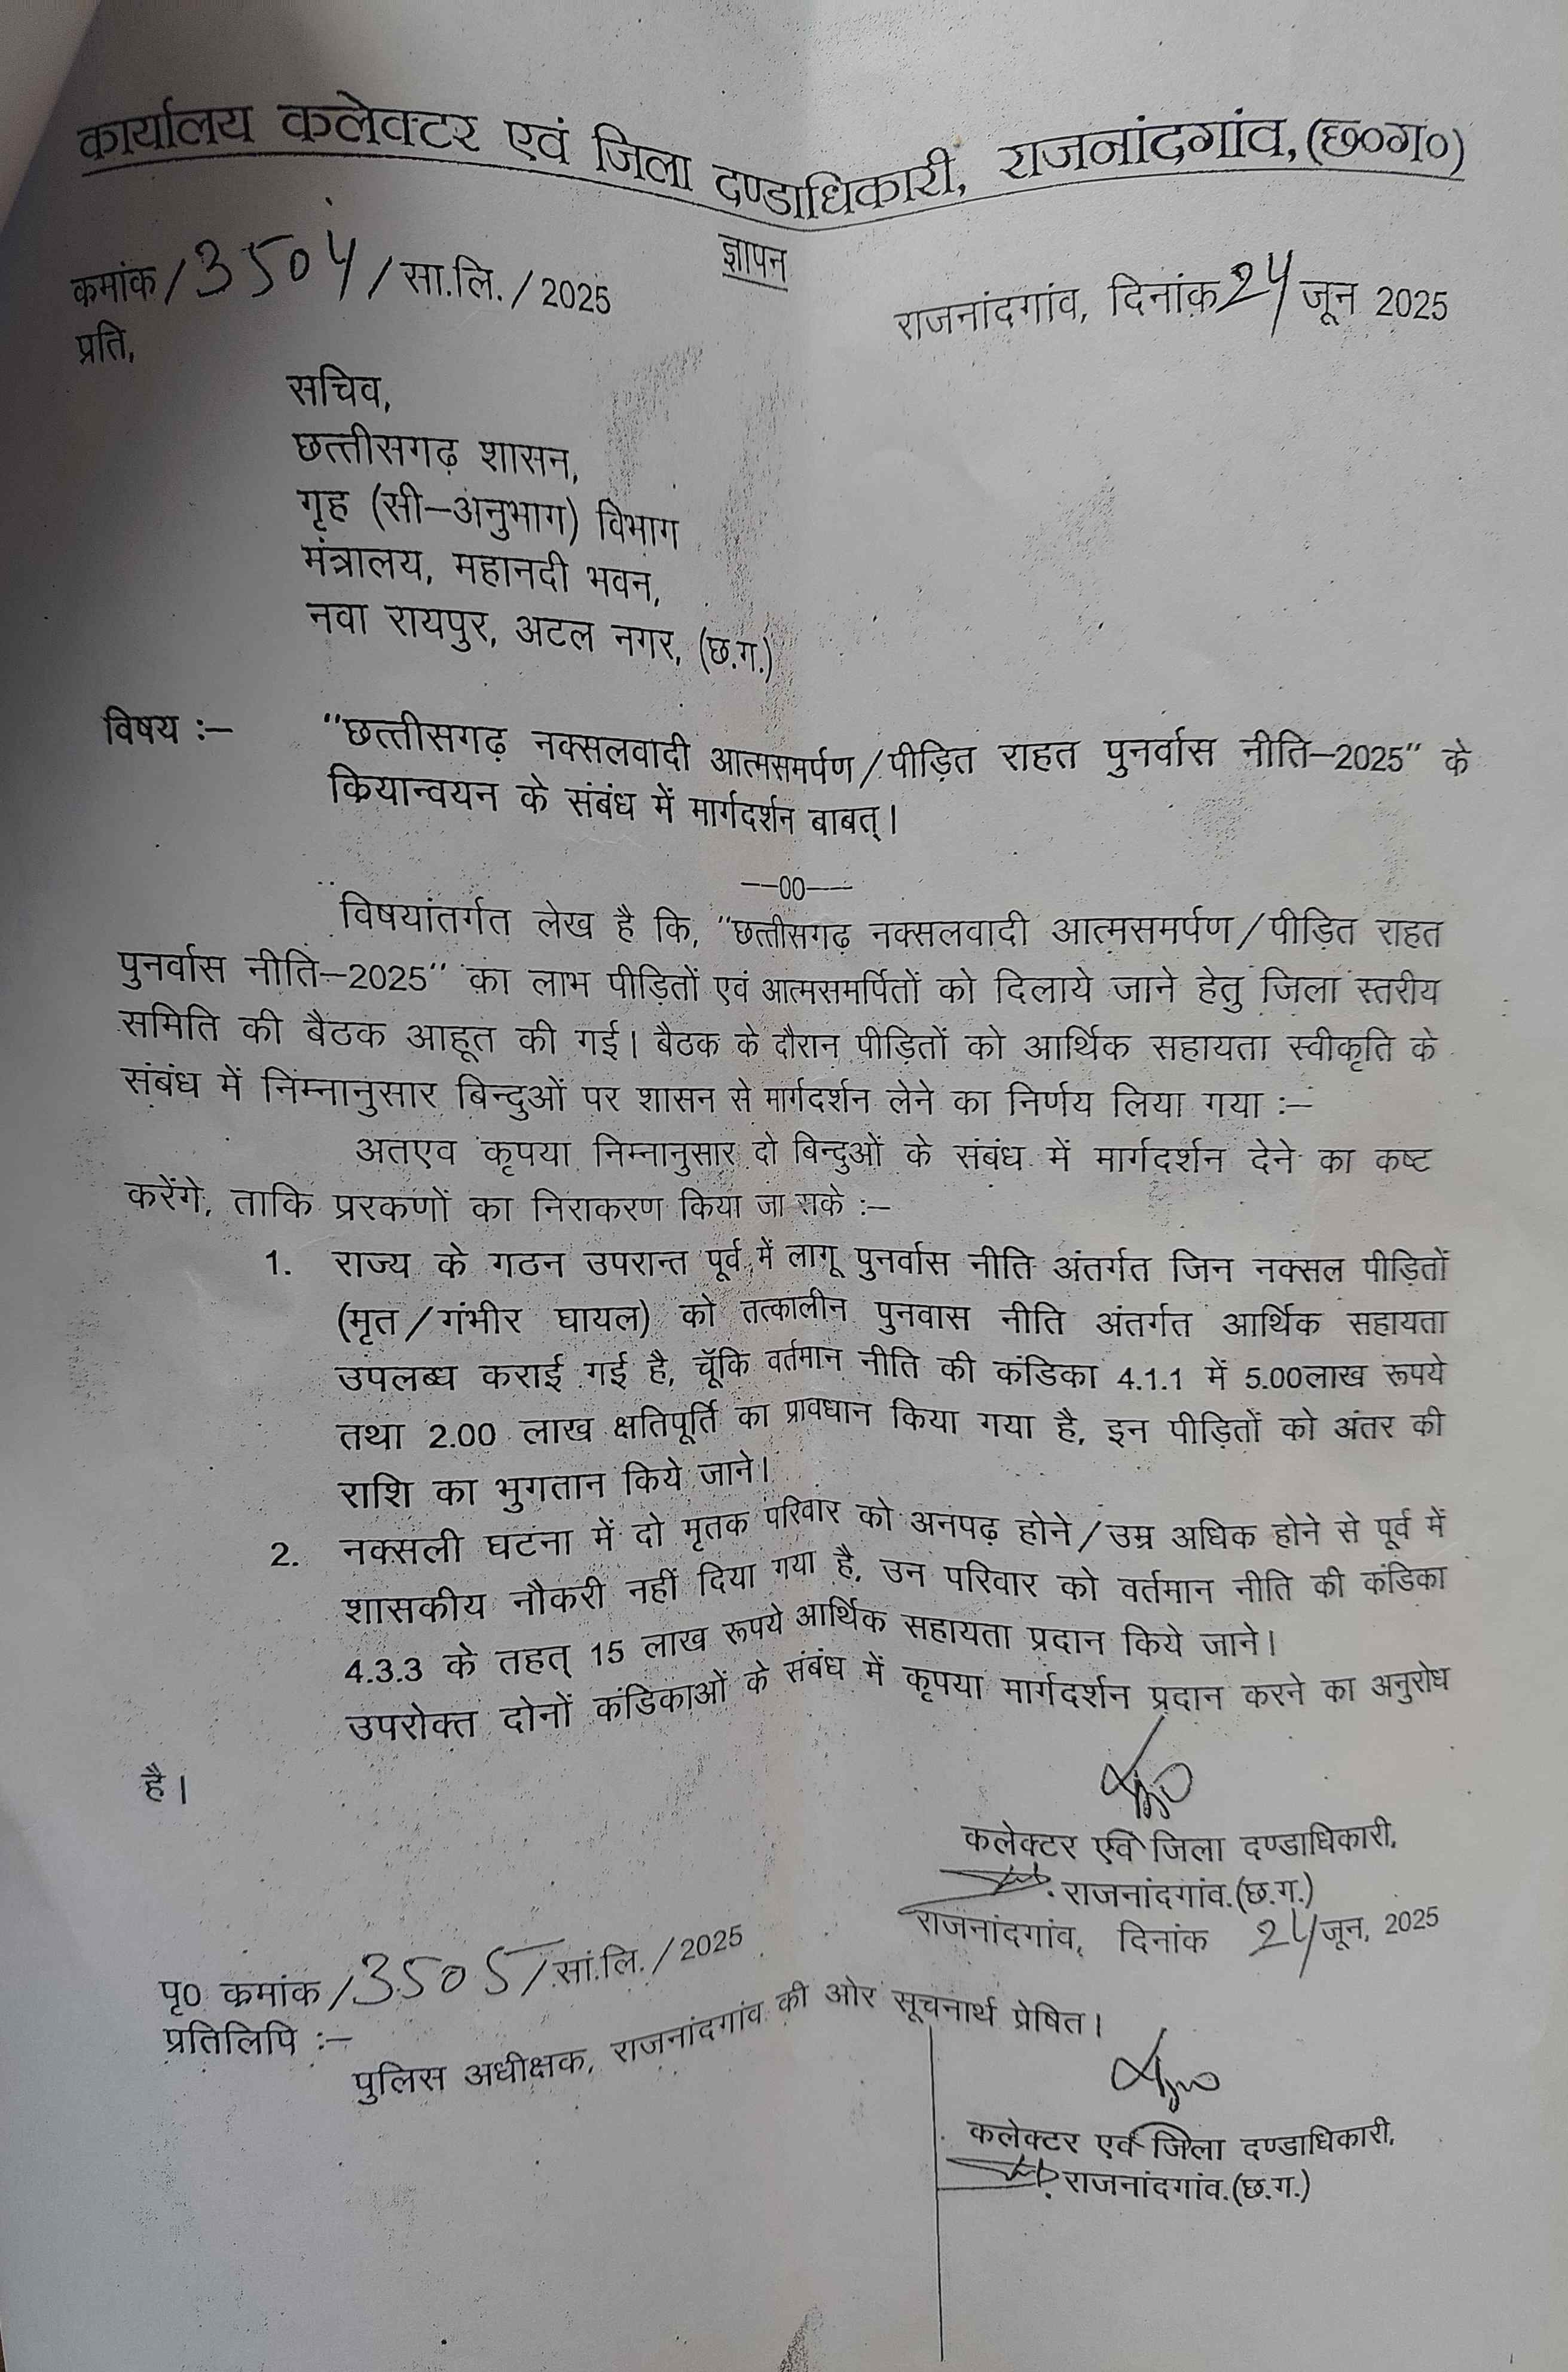 कार्यालय कलेक्टर एवं जिला दण्डाधिकारी, राजनांदगांव,(छ०ग०)
ज्ञापन
कमांक/3504/सा.लि./2025
राजनांदगांव, दिनांक 24 जून 2025
प्रति,
सचिव,
छत्तीसगढ़ शासन,
गृह (सी–अनुभाग) विभाग
मंत्रालय, महानदी भवन,
नवा रायपुर, अटल नगर, (छ.ग.)
विषय :– "छत्तीसगढ़ नक्सलवादी आत्मसमर्पण/पीड़ित राहत पुनर्वास नीति–2025" के
कियान्वयन के संबंध में मार्गदर्शन बाबत्।
––00––
विषयांतर्गत लेख है कि, "छत्तीसगढ़ नक्सलवादी आत्मसमर्पण/पीड़ित राहत
पुनर्वास नीति–2025" का लाभ पीड़ितों एवं आत्मसमर्पितों को दिलाये जाने हेतु जिला स्तरीय
समिति की बैठक आहूत की गई। बैठक के दौरान पीड़ितों को आर्थिक सहायता स्वीकृति के
संबंध में निम्नानुसार बिन्दुओं पर शासन से मार्गदर्शन लेने का निर्णय लिया गया :–
अतएव कृपया निम्नानुसार दो बिन्दुओं के संबंध में मार्गदर्शन देने का कष्ट
करेंगे, ताकि प्ररकणों का निराकरण किया जा सके :–
1. राज्य के गठन उपरान्त पूर्व में लागू पुनर्वास नीति अंतर्गत जिन नक्सल पीड़ितों
(मृत/गंभीर घायल) को तत्कालीन पुनवास नीति अंतर्गत आर्थिक सहायता
उपलब्ध कराई गई है, चूॅकि वर्तमान नीति की कंडिका 4.1.1 में 5.00लाख रूपये
तथा 2.00 लाख क्षतिपूर्ति का प्रावधान किया गया है, इन पीड़ितों को अंतर की
राशि का भुगतान किये जाने।
2. नक्सली घटना में दो मृतक परिवार को अनपढ़ होने/उम्र अधिक होने से पूर्व में
शासकीय नौकरी नहीं दिया गया है, उन परिवार को वर्तमान नीति की कंडिका
4.3.3 के तहत् 15 लाख रूपये आर्थिक सहायता प्रदान किये जाने।
उपरोक्त दोनों कंडिकाओं के संबंध में कृपया मार्गदर्शन प्रदान करने का अनुरोध
है।
कलेक्टर एवं जिला दण्डाधिकारी,
राजनांदगांव.(छ.ग.)
राजनांदगांव, दिनांक 24 जून, 2025
पृ0 कमांक/3505/सां.लि./2025
प्रतिलिपि :–
पुलिस अधीक्षक, राजनांदगांव की ओर सूचनार्थ प्रेषित।
कलेक्टर एवं जिला दण्डाधिकारी,
राजनांदगांव.(छ.ग.)